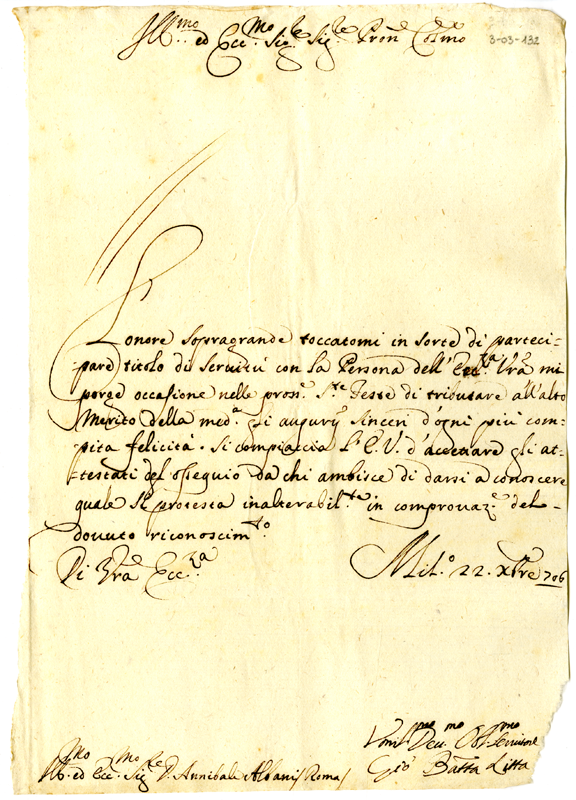 Ill.mo ed Ecc.mo Sig.re Sig.re Pron. Col.mo
3-03-132
L'onore sopragrande toccatomi in sorte di parteci-
pare titolo di Servitù con la Persona dell'Ecc.za Vra mi
porge occasione nelle pross.e S.te Feste di tributare all'alto
Merito della med.a gli augurÿ sinceri d'ogni più com-
pita felicità. Si compiaccia l'E.V. d'accettare gli at-
testati del ossequio da chi ambisce di darsi a conoscere
quale si protesta inalterabil.te in comprovaz.e del
dovuto riconoscim.to
Di Vra Ecc.za
Mil.o 22. Xbre 706
Ill.mo ed Ecc.mo Sig.re D. Annibale Albani Roma
Dev.mo Obl.mo Servitore
Gio Batta Litta